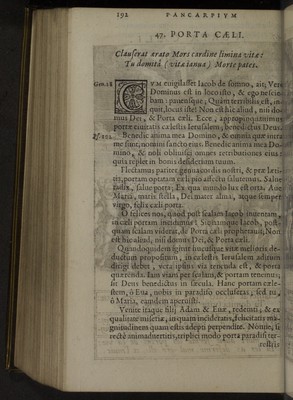 192 PANCARPIVM
47. PORTA CÆLI.
Clauserat ærato Mors cardine limina vitæ:
Tu domitâ (vitæ ianua) Morte pates.
Gen. 28 CVM euigilasset Iacob de somno, ait; Verè
Dominus est in loco isto, & ego nesciebam
: pauensque; Quàm terribilis est, inquit
, locus iste! Non est hîc aliud, nisi domus
Dei, & Porta cæli. Ecce, appropinquamus
portæ ciuitatis cælestis Ierusalem, benedictus Deus.
Benedic anima mea Domino, & omnia quæ intra
me sunt, nomini sancto eius. Benedic anima mea Domino
, & noli obliuisci omnes retributiones eius:
qui replet in bonis desiderium tuum.
Flectamus pariter genua
portam optatam cæli pio affectu salutemus. Salue
radix, salue porta, Ex qua mundo lux est orta: Aue
Maria, maris stella, Dei mater alma, atque semper
virgo, felix cæli porta.
O felices nos, quod post scalam Iacob inuentam,
in cæli portam incidimus! Siquidem Iacob, postquam
scalam viderat, de Porta cæli prophetauit, Non
est hîc aliud, nisi domus Dei, & Porta cæli.
Quandoquidem igitur
propositum, in cælestis Ierusalem aditum
dirigi debet, vera ipsius via ineunda est, & porta
quærenda. Iam viam per scalam, & portam tenemus;
sit Deus benedictus in sæcula. Hanc portam cælestem
, ô Eua, nobis in paradiso occluseras; sed tu,
ô Maria, eamdem aperuisti.
Venite itaque filij Adam & Euæ, redempti, & ex
qualitate miseriæ, in quam incideratis, felicitatis magnitudinem
quam estis adepti perpendite. Nonne, si
rectè animaduertitis, triplici modo porta paradisi terrestris